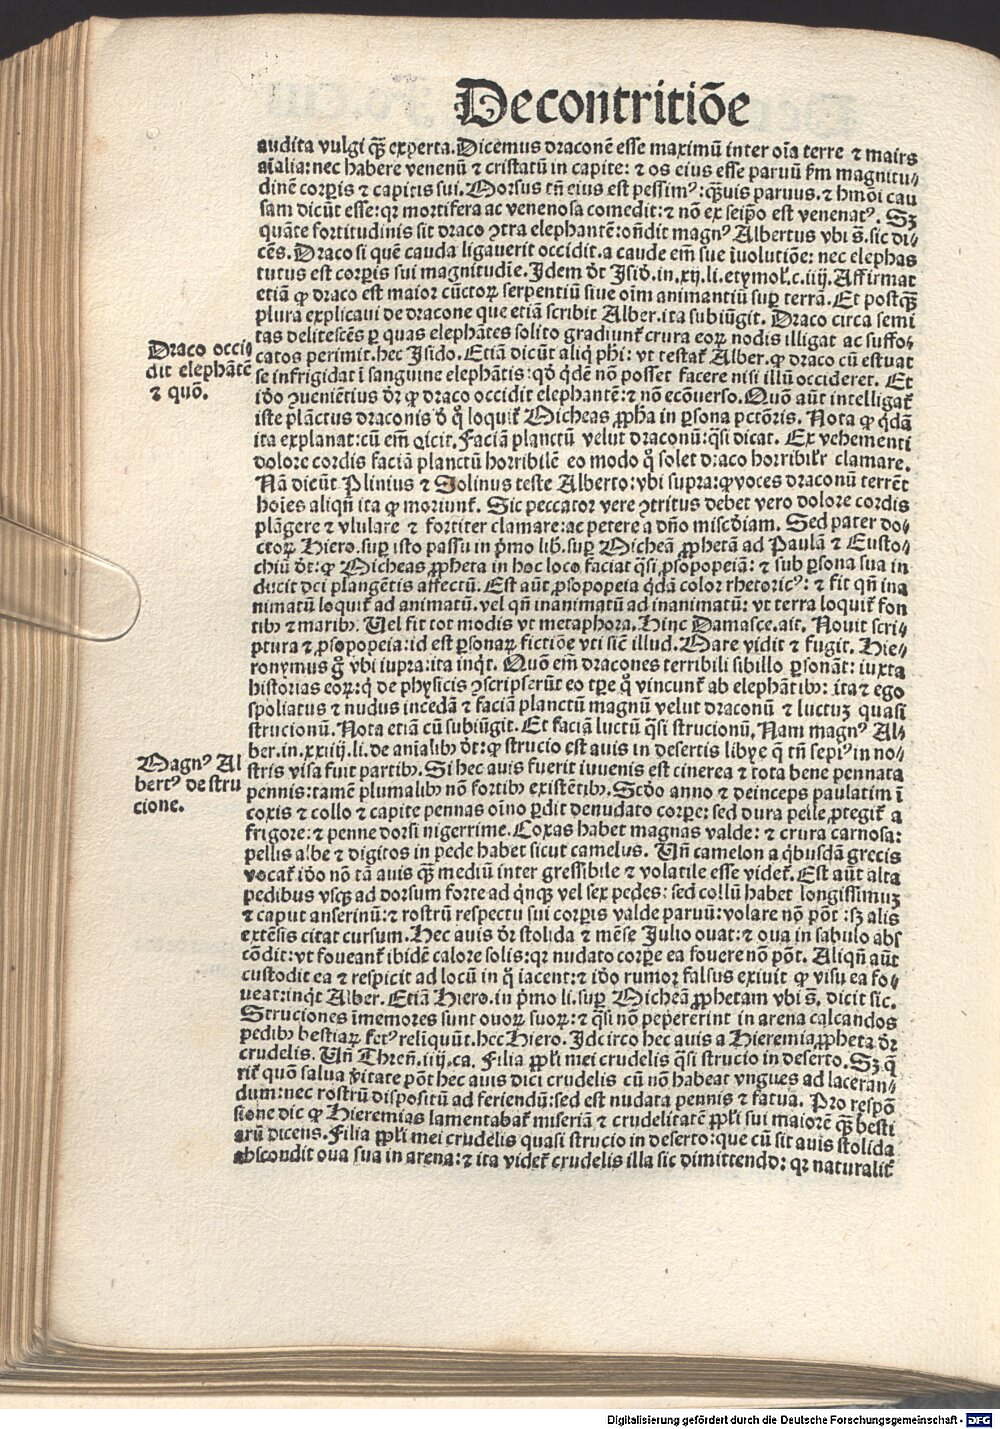 De contritiõe
audita vulgi qȝ̃ experta. Dicemus draconẽ esse maximũ inter oĩa terre ⁊ mairs
aĩalia: nec habere venenũ ⁊ cristatũ in capite: ⁊ os eius esse paruũ ẜm magnitu⸗
dinẽ corꝑis ⁊ capitis sui. Morsus tñ eius est pessimꝰ: qȝ̃uis paruus. ⁊ hmõi cau
sam dicũt esse: qꝛ mortifera ac venenosa comedit: ⁊ nõ ex seip̃o est venenatꝰ. Sȝ
quãte fortitudinis sit draco ꝯtra elephantẽ: oñdit magnꝰ Albertus vbi s̃. sic di⸗
cẽs. Draco si quẽ cauda ligauerit occidit. a caude em̃ sue ĩuolutiõe: nec elephas
tutus est corꝑis sui magnitudĩe. Idem d̃t Isid̃. in. xij. li. etymol̃. c. iiij. Affirmat
etiã ꝙ draco est maior cũctoꝝ serpentiũ siue oĩm animantiũ suꝑ terrã. Et postqȝ̃
plura explicaui de dracone que etiã scribit Alber. ita subiũgit. Draco circa semi
tas delitescẽs ꝑ quas elephãtes solito gradiunt̃ crura eoꝝ nodis illigat ac suffo⸗
catos perimit. hec Isido. Etiã dicũt aliq̃ ph̃i: vt testat̃ Alber. ꝙ draco cũ estuat
se infrigidat ĩ sanguine elephãtis: qd̃ q̇dẽ nõ posset facere nisi illũ occideret. Et
id̃o ꝯuenientiꝰ d̃r ꝙ draco occidit elephantẽ: ⁊ nõ ecõuerso. Quõ aũt intelligat̃
iste plãctus draconis d̃ q̊ loquit̃ Micheas ꝓpha in ꝑsona pctõris. Nota ꝙ q̇dã
ita explanat: cũ em̃ dicit. Faciã planctũ velut draconũ: q̃si dicat. Ex vehementi
dolore cordis faciã planctũ horribilẽ eo modo q̊ solet draco horribilr̃ clamare.
Nã dicũt Plinius ⁊ Solinus teste Alberto: vbi supra: ꝙ voces draconũ terrẽt
hoĩes aliqñ ita ꝙ moriunt̃. Sic peccator vere ꝯtritus debet vero dolore cordis
plãgere ⁊ vlulare ⁊ fortiter clamare: ac petere a dño misc̃diam. Sed pater do⸗
ctoꝝ Hiero. suꝑ isto passu in p̃mo lib̃. suꝑ Micheã ꝓphetã ad Paulã ⁊ Eusto⸗
chiũ d̃t: ꝙ Micheas ꝓpheta in hoc loco faciat q̃si ꝓsopopeiã: ⁊ sub ꝑsona sua in
ducit dei plangẽtis affectũ. Est aũt ꝓsopopeia q̇dã color rhetoricꝰ: ⁊ fit qñ ina
nimatũ loquit̃ ad animatũ. vel qñ inanimatũ ad inanimatũ: vt terra loquit̃ fon
tibꝰ ⁊ maribꝰ. Uel fit tot modis vt metaphora. Hinc Damasce. ait. Nouit scri⸗
ptura ⁊ ꝓsopopeia: id est ꝑsonaꝝ fictiõe vti sicut illud. Mare vidit ⁊ fugit. Hie⸗
ronymus g̊ vbi supra: ita inq̇t. Quõ em̃ dracones terribili sibillo ꝑsonãt: iuxta
historias eoꝝ: q̇ de physicis ꝯscripserũt eo tp̃e q̊ vincunt̃ ab elephãtibꝰ: ita ⁊ ego
spoliatus ⁊ nudus incedã ⁊ faciã planctũ magnũ velut draconũ ⁊ luctuȝ quasi
strucionũ. Nota etiã cũ subiũgit. Et faciã luctũ q̃si strucionũ. Nam magnꝰ Al⸗
ber. in. xxiiij. li. de aĩalibꝰ d̃t: ꝙ strucio est auis in desertis libye q̃ tñ sepiꝰ in no⸗
stris visa fuit partibꝰ. Si hec auis fuerit iuuenis est cinerea ⁊ tota bene pennata
pennis: tamẽ plumalibꝰ nõ fortibꝰ existẽtibꝰ. Scd̃o anno ⁊ deinceps paulatim ĩ
coxis ⁊ collo ⁊ capite pennas oĩno ꝑdit denudato corꝑe: sed dura pelle ꝓtegit̃ a
frigore: ⁊ penne dorsi nigerrime. Coxas habet magnas valde: ⁊ crura carnosa:
pellis albe ⁊ digitos in pede habet sicut camelus. Uñ camelon a q̇busdã grecis
vocat̃ id̃o nõ tã auis qȝ̃ mediũ inter gressibile ⁊ volatile esse videt̃. Est aũt alta
pedibus vsqȝ ad dorsum forte ad q̇nqȝ vel sex pedes: sed collũ habet longissimuȝ
⁊ caput anserinũ: ⁊ rostrũ respectu sui corꝑis valde paruũ: volare nõ põt: sȝ alis
extẽsis citat cursum. Hec auis d̃r stolida ⁊ mẽse Julio ouat: ⁊ oua in sabulo abs
cõdit: vt foueant̃ ibidẽ calore solis: qꝛ nudato corꝑe ea fouere nõ põt. Aliqñ aũt
custodit ea ⁊ respicit ad locũ in q̊ iacent: ⁊ id̃o rumoꝛ falsus exiuit ꝙ visu ea fo⸗
ueat: inq̇t Alber. Etiã Hiero. in p̃mo li. suꝑ Micheã ꝓphetam vbi s̃. dicit sic.
Struciones ĩmemores sunt ouoꝝ suoꝝ: ⁊ q̃si nõ pepererint in arena calcandos
pedibꝰ bestiaꝝ fet̃ꝰ reliquũt. hec Hiero. Idcirco hec auis a Hieremia ꝓpheta d̃r
crudelis. Uñ Threñ. iiij. ca. Filia ppl̃i mei crudelis q̃si strucio in deserto. Sȝ q̃
rit̃ quõ salua v̑itate põt hec auis dici crudelis cũ nõ habeat vngues ad laceran⸗
dum: nec rostrũ dispositũ ad feriendũ: sed est nudata pennis ⁊ fatua. Pro respõ
sione dic ꝙ Hieremias lamentabat̃ miseriã ⁊ crudelitatẽ ppl̃i sui maiorẽ qȝ̃ besti
arũ dicens. Filia ppl̃i mei crudelis quasi strucio in deserto: que cũ sit auis stolida
abscondit oua sua in arena: ⁊ ita videt̃ crudelis illa sic dimittendo: qꝛ naturalit̃
Draco occi
dit elephãtẽ
⁊ quõ.
Magnꝰ Al
bertꝰ de stru
cione.
Digitalisierung gefördert durch die Deutsche Forschungsgemeinschaft - DFG